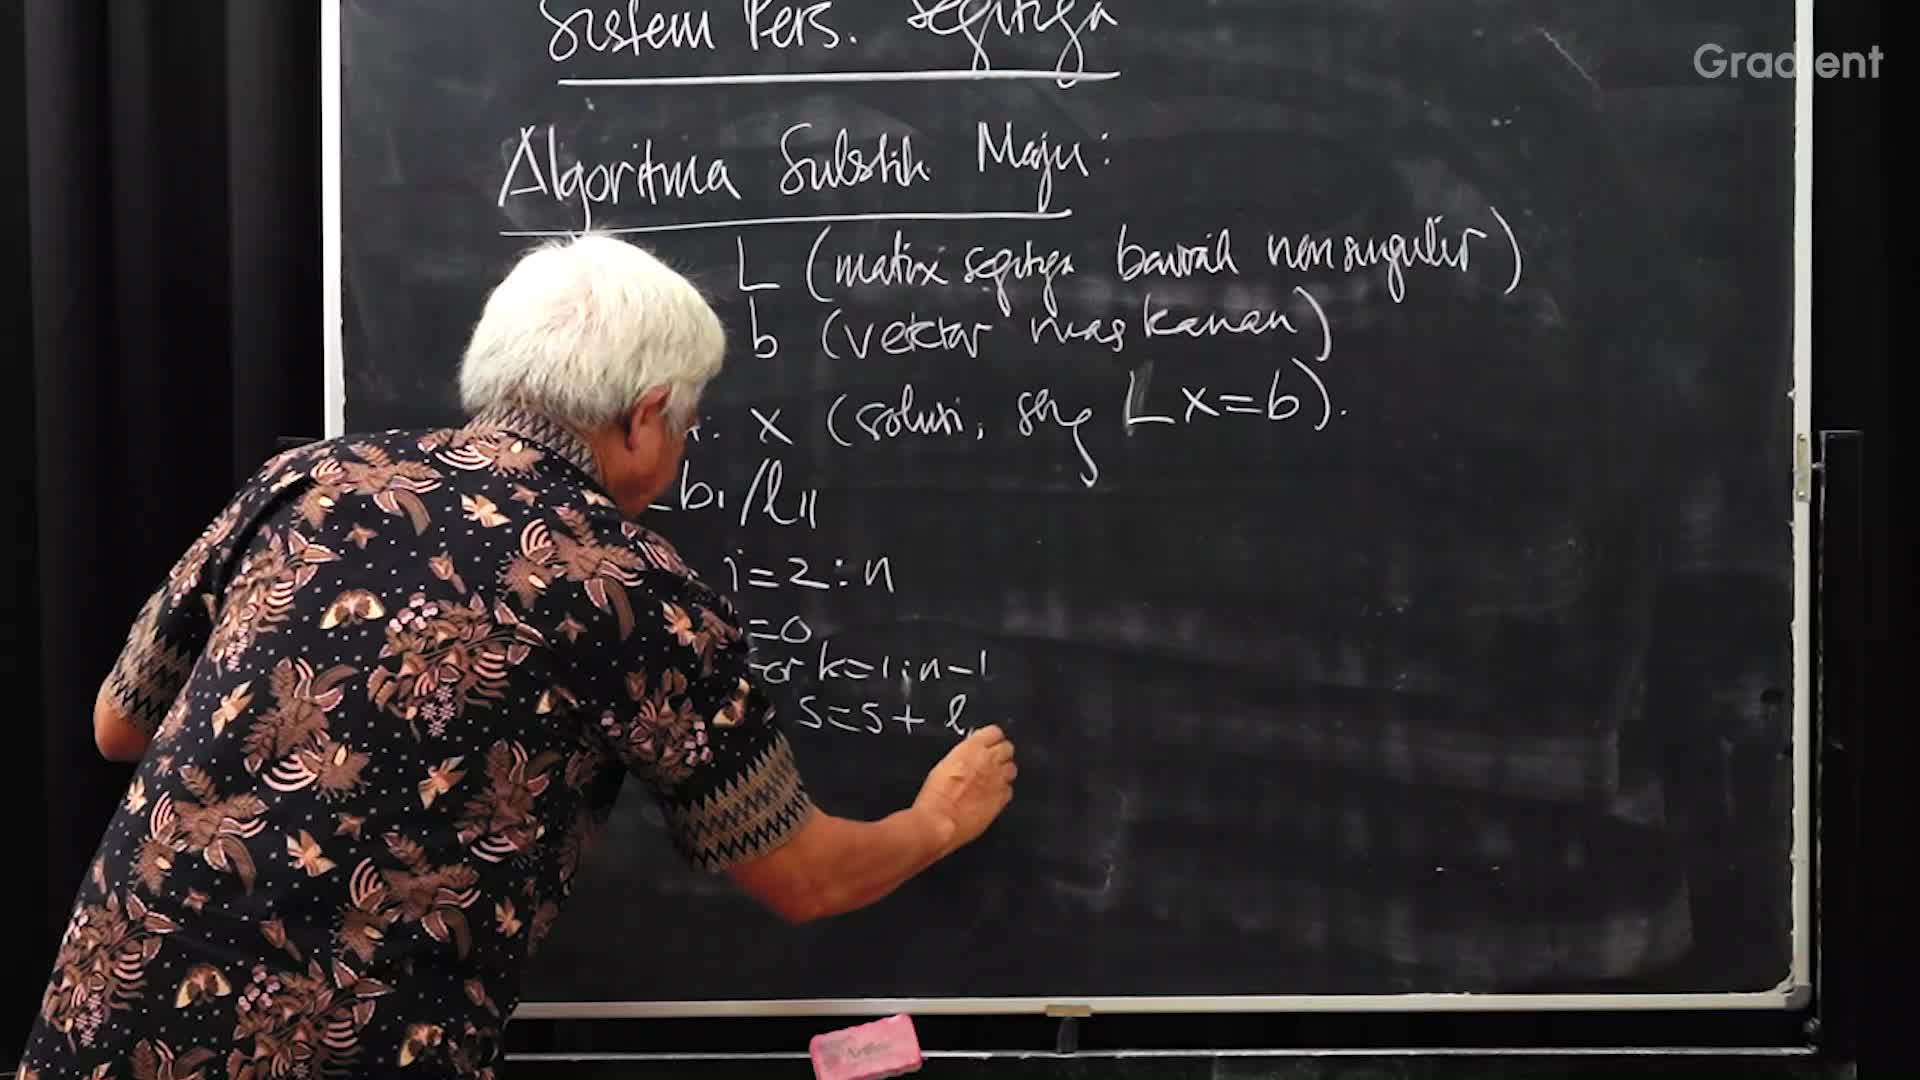 Sistem Pers. Segitiga
Gradient
Algoritma Substit. Maju:
L (matrix segitiga bawah nonsingulir)
b (vektor ruas kanan)
x (solusi, shg Lx=b).
b1/l11
i=2:n
=0
for k=1:n-1
s=s+l